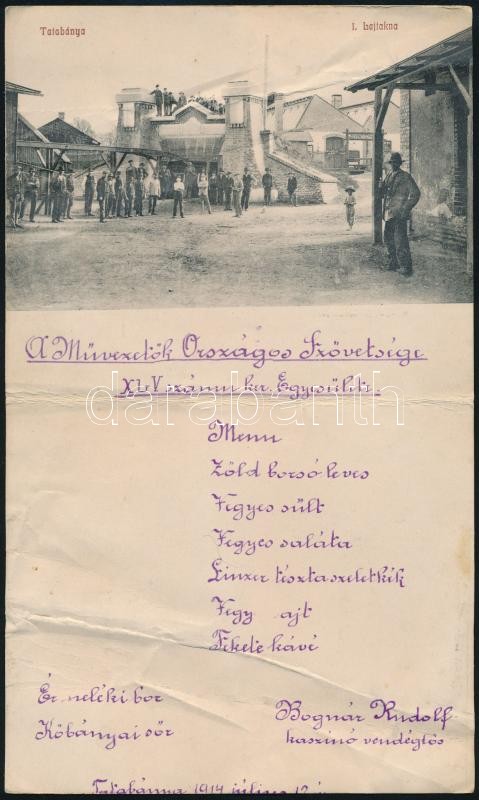 Tatabánya
I. Lejtakna
A Művezetők Országos Szövetsége
XLV számu ker. Egyesülete
darabanth
Menu
Zöld borsó leves
Vegyes sült
Vegyes saláta
Linzer tésztaszeletkék
Vegy ajt
Fekete kávé
Érmelléki bor
Kőbányai sör
Bognár Rudolf
kaszinó vendéglős
Tatabánya 1914 július 12